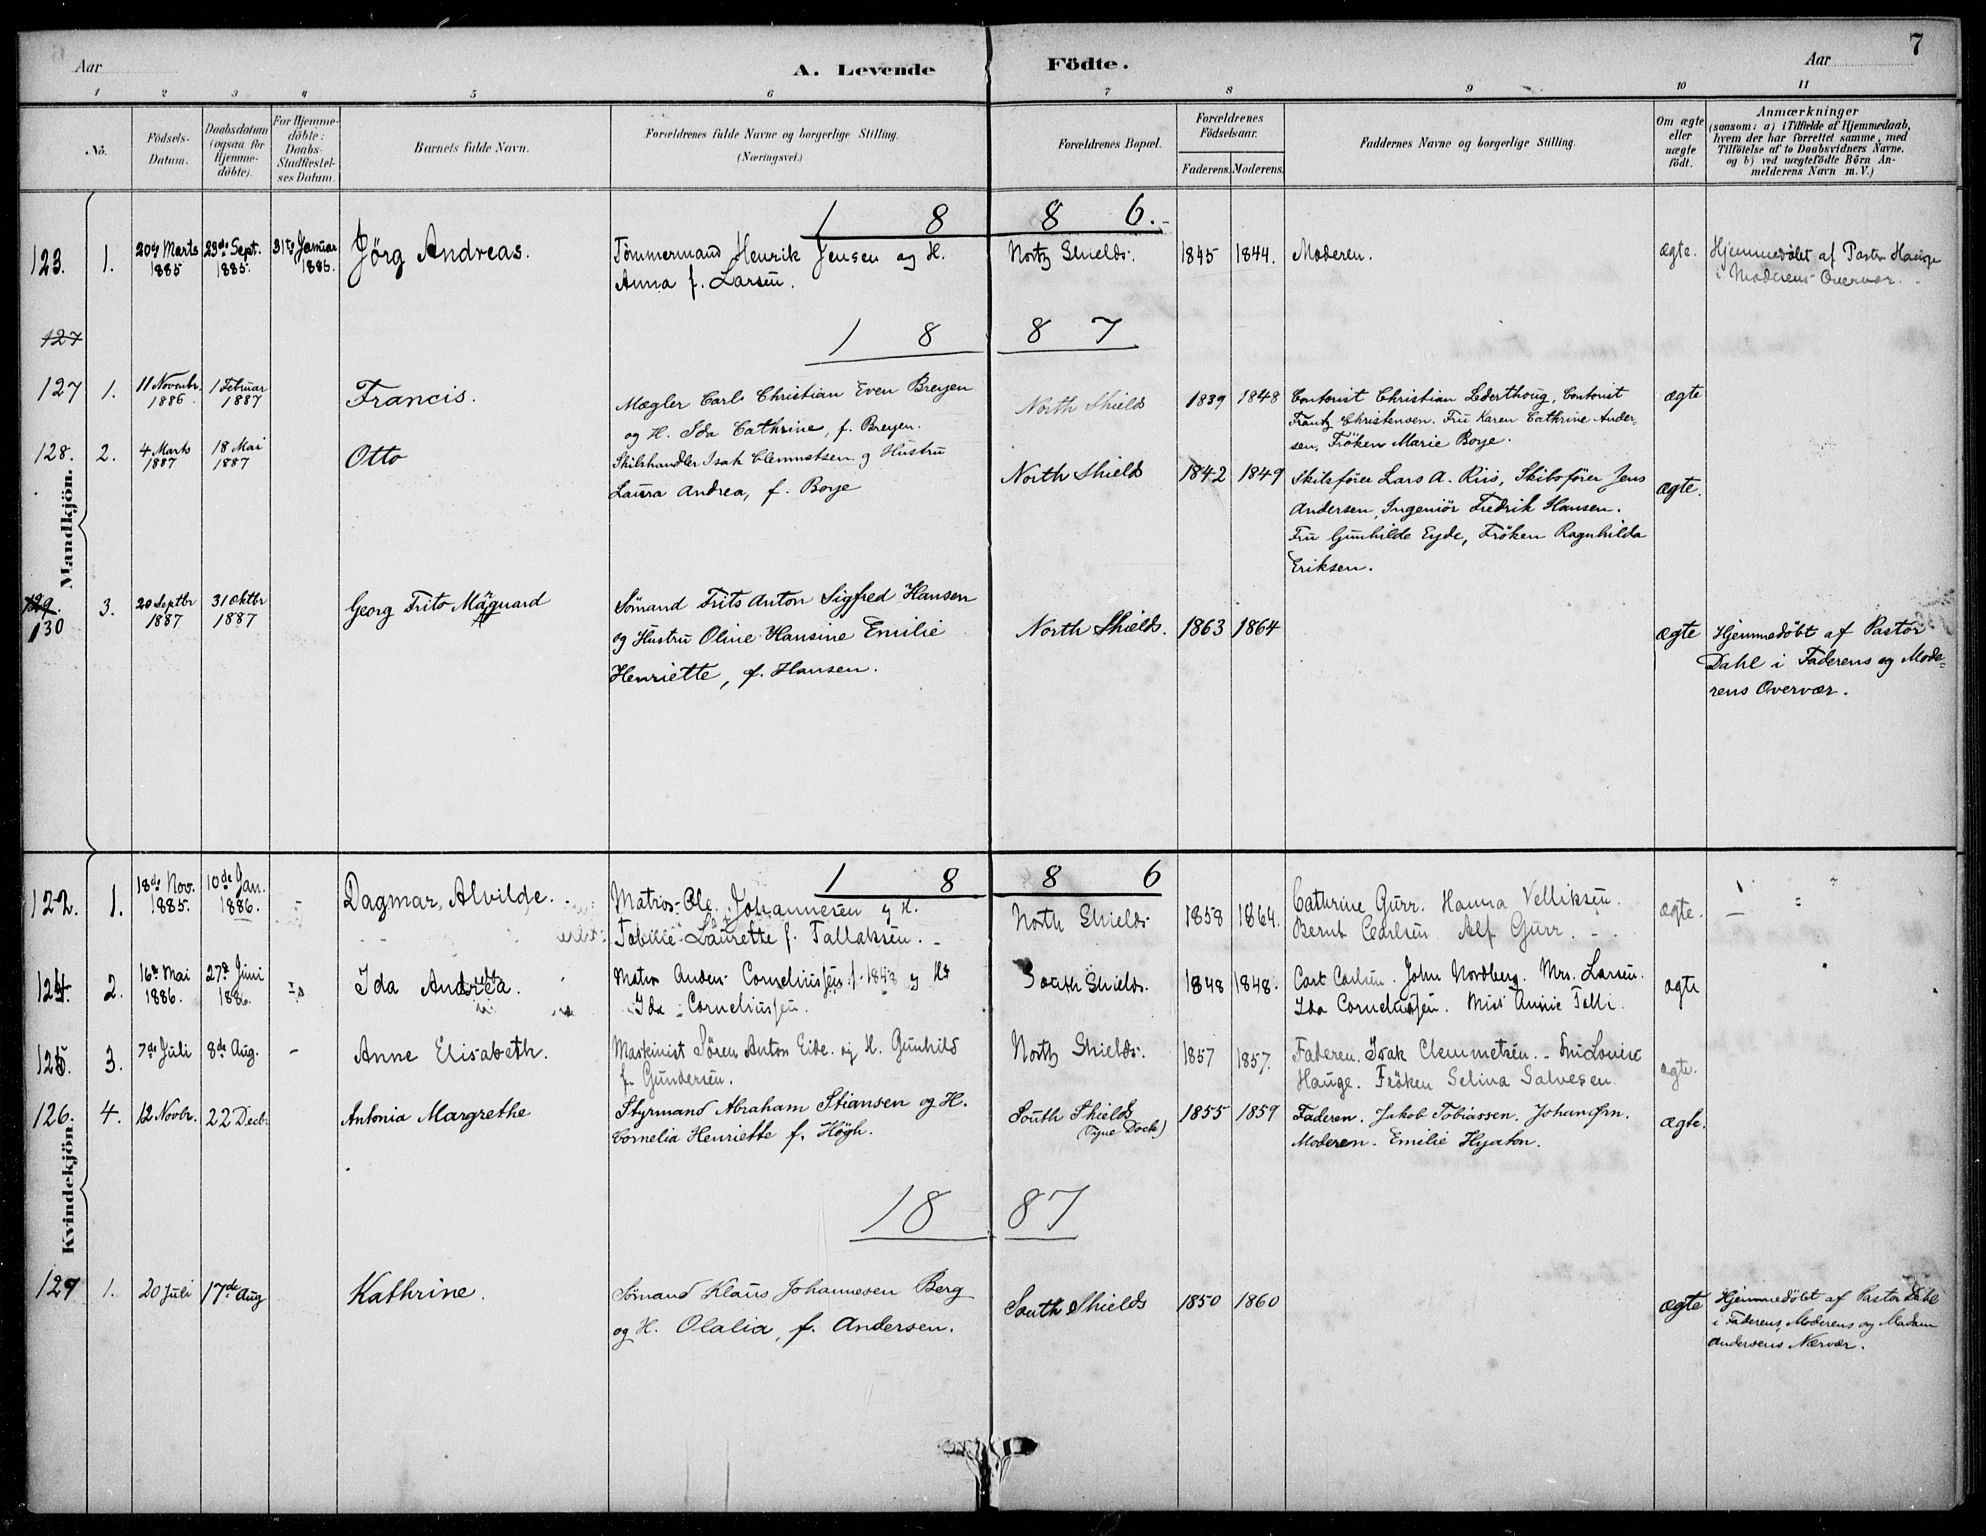 7
Aar
A. Levende
Födte.
Aar
1 2 3 4 5 6 7 8 9 10 11
No.
Födsels-
Datum.
Daabsdatum
(ogsaa for
Hjemme-
döbte).
For Hjemme-
döbte:
Daabs-
Stadfæstel-
ses Datum.
Barnets fulde Navn.
Forældrenes fulde Navne og borgerlige Stilling.
(Næringsvei.)
Forældrenes Bopæl.
Forældrenes
Födselsaar.
Faderens. Moderens.
Faddernes Navne og borgerlige Stilling.
Om ægte
eller
uægte
födt.
Anmærkninger
(saasom: a) i Tilfælde af Hjemmedaab,
hvem der har forrettet samme, med
Tilföielse af to Daabsvidners Navne,
og b) ved uægtefödte Börn An-
melderens Navn m. V.)
Mandkjön.
1 8 8 6.
123. 1. 20de Marts 23de Sept. 31te Januar Jörg Andreas. Tømmermand Henrik Jensen og H. North Shields. 1845 1844. Moderen. ægte. Hjemmedøbt af Pastor Hauge
1885 1885. 1886. Anna f. Larsen. i Moderens Overvær.
127
1 8 8 7
127 1. 11 Novembr. 1 Februar Francis. Mægler Carl Christian Even Breyen North Shields 1839 1848 Contorist Christian Lederthoug, Contorist ægte
1886 1887 og H. Ida Cathrine, f. Breyen. Frantz Christensen. Fru Karen Cathrine Ander-
sen, Frøken Marie Borge.
128. 2. 4 Marts 18 Mai Otto Skibshandler Isak Clemmetsen og Hustru North Shields 1842 1849 Skibsfører Lars A. Riis, Skibsfører Jens ægte.
1887 1887 Laura Andrea, f. Borge Andersen, Ingeniør Fredrik Hansen.
Fru Gunhilde Eyde, Frøken Ragnhilda
Eriksen.
129.
130 3. 20 Septbr 31 Oktbr Georg Frits Magnard Sømand Frits Anton Sigfred Hansen North Shields. 1863 1864 ægte Hjemmedøbt af Pastor
1887 1887 og Hustru Oline Hansine Emilie Dahl i Faderens og Mode-
Henriette, f. Hansen. rens Overvær.
Kvindekjön.
1 8 8 6
122. 1. 18de Nov. 10de Jan. Dagmar Alvilde. Matros Ole Johannesen og H. North Shields 1858 1864. Cathrine Gurr. Hanna Velliksen. ægte.
1885. 1886. Laurette f. Tallaksen. Bernt Carlsen. Alf Gurr.
124. 2. 16de Mai 27de Juni Ida Andrea. Matros Anders Corneliussen f. 1848 og H. South Shields. 1848 1848. Carl Carlsen. John Nordberg. Mrs. Larsen. ægte
1886. 1886. Ida Corneliussen. Ida Corneliussen. Miss Annie Telli.
125 3. 7de Juli 8de Aug. Anne Elisabeth. Maskinist Søren Anton Eide og H. Gunhild North Shields. 1857 1857. Faderen. Isak Clemmetsen. Fru Louise ægte.
f. Gundersen. Hauge. Frøken Selina Salvesen
126. 4. 12 Novbr. 22 Decbr. Antonia Margrethe Styrmand Abraham Stiansen og H. South Shields 1855 1859 Faderen. Jakob Tobiassen. Johan Ørn. ægte.
Cornelia Henriette f. Høgh. (Tyne Dock) Moderen. Emilie Hyaton.
18 87
129 1. 20 Juli 17de Aug Kathrine. Sømand Klaus Johannesen Berg South Shields 1850 1860 ægte Hjemmedøbt af Pastor Dahl
og H. Olalia, f. Andersen. i Faderens, Moderens og Madam
Andersens Nærvær.